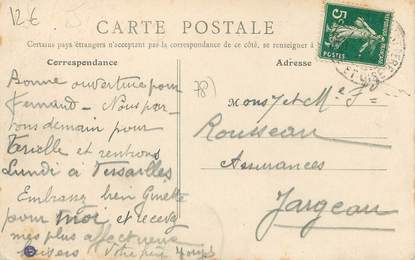 12€
CARTE POSTALE
Certains pays étrangers n'acceptant pas la correspondance de ce côté, se renseigner à
Correspondance
Adresse
5c
POSTES
ET-OISE
Bonne ouverture pour
Fernand - Nous par-
tons demain pour
et rentrons
Lundi à Versailles
Embrassez bien Ginette
pour moi et recevez
mes plus affectueux
baisers Votre
78)
Mons r et Me
Rousseau
Assurances
Jargeau